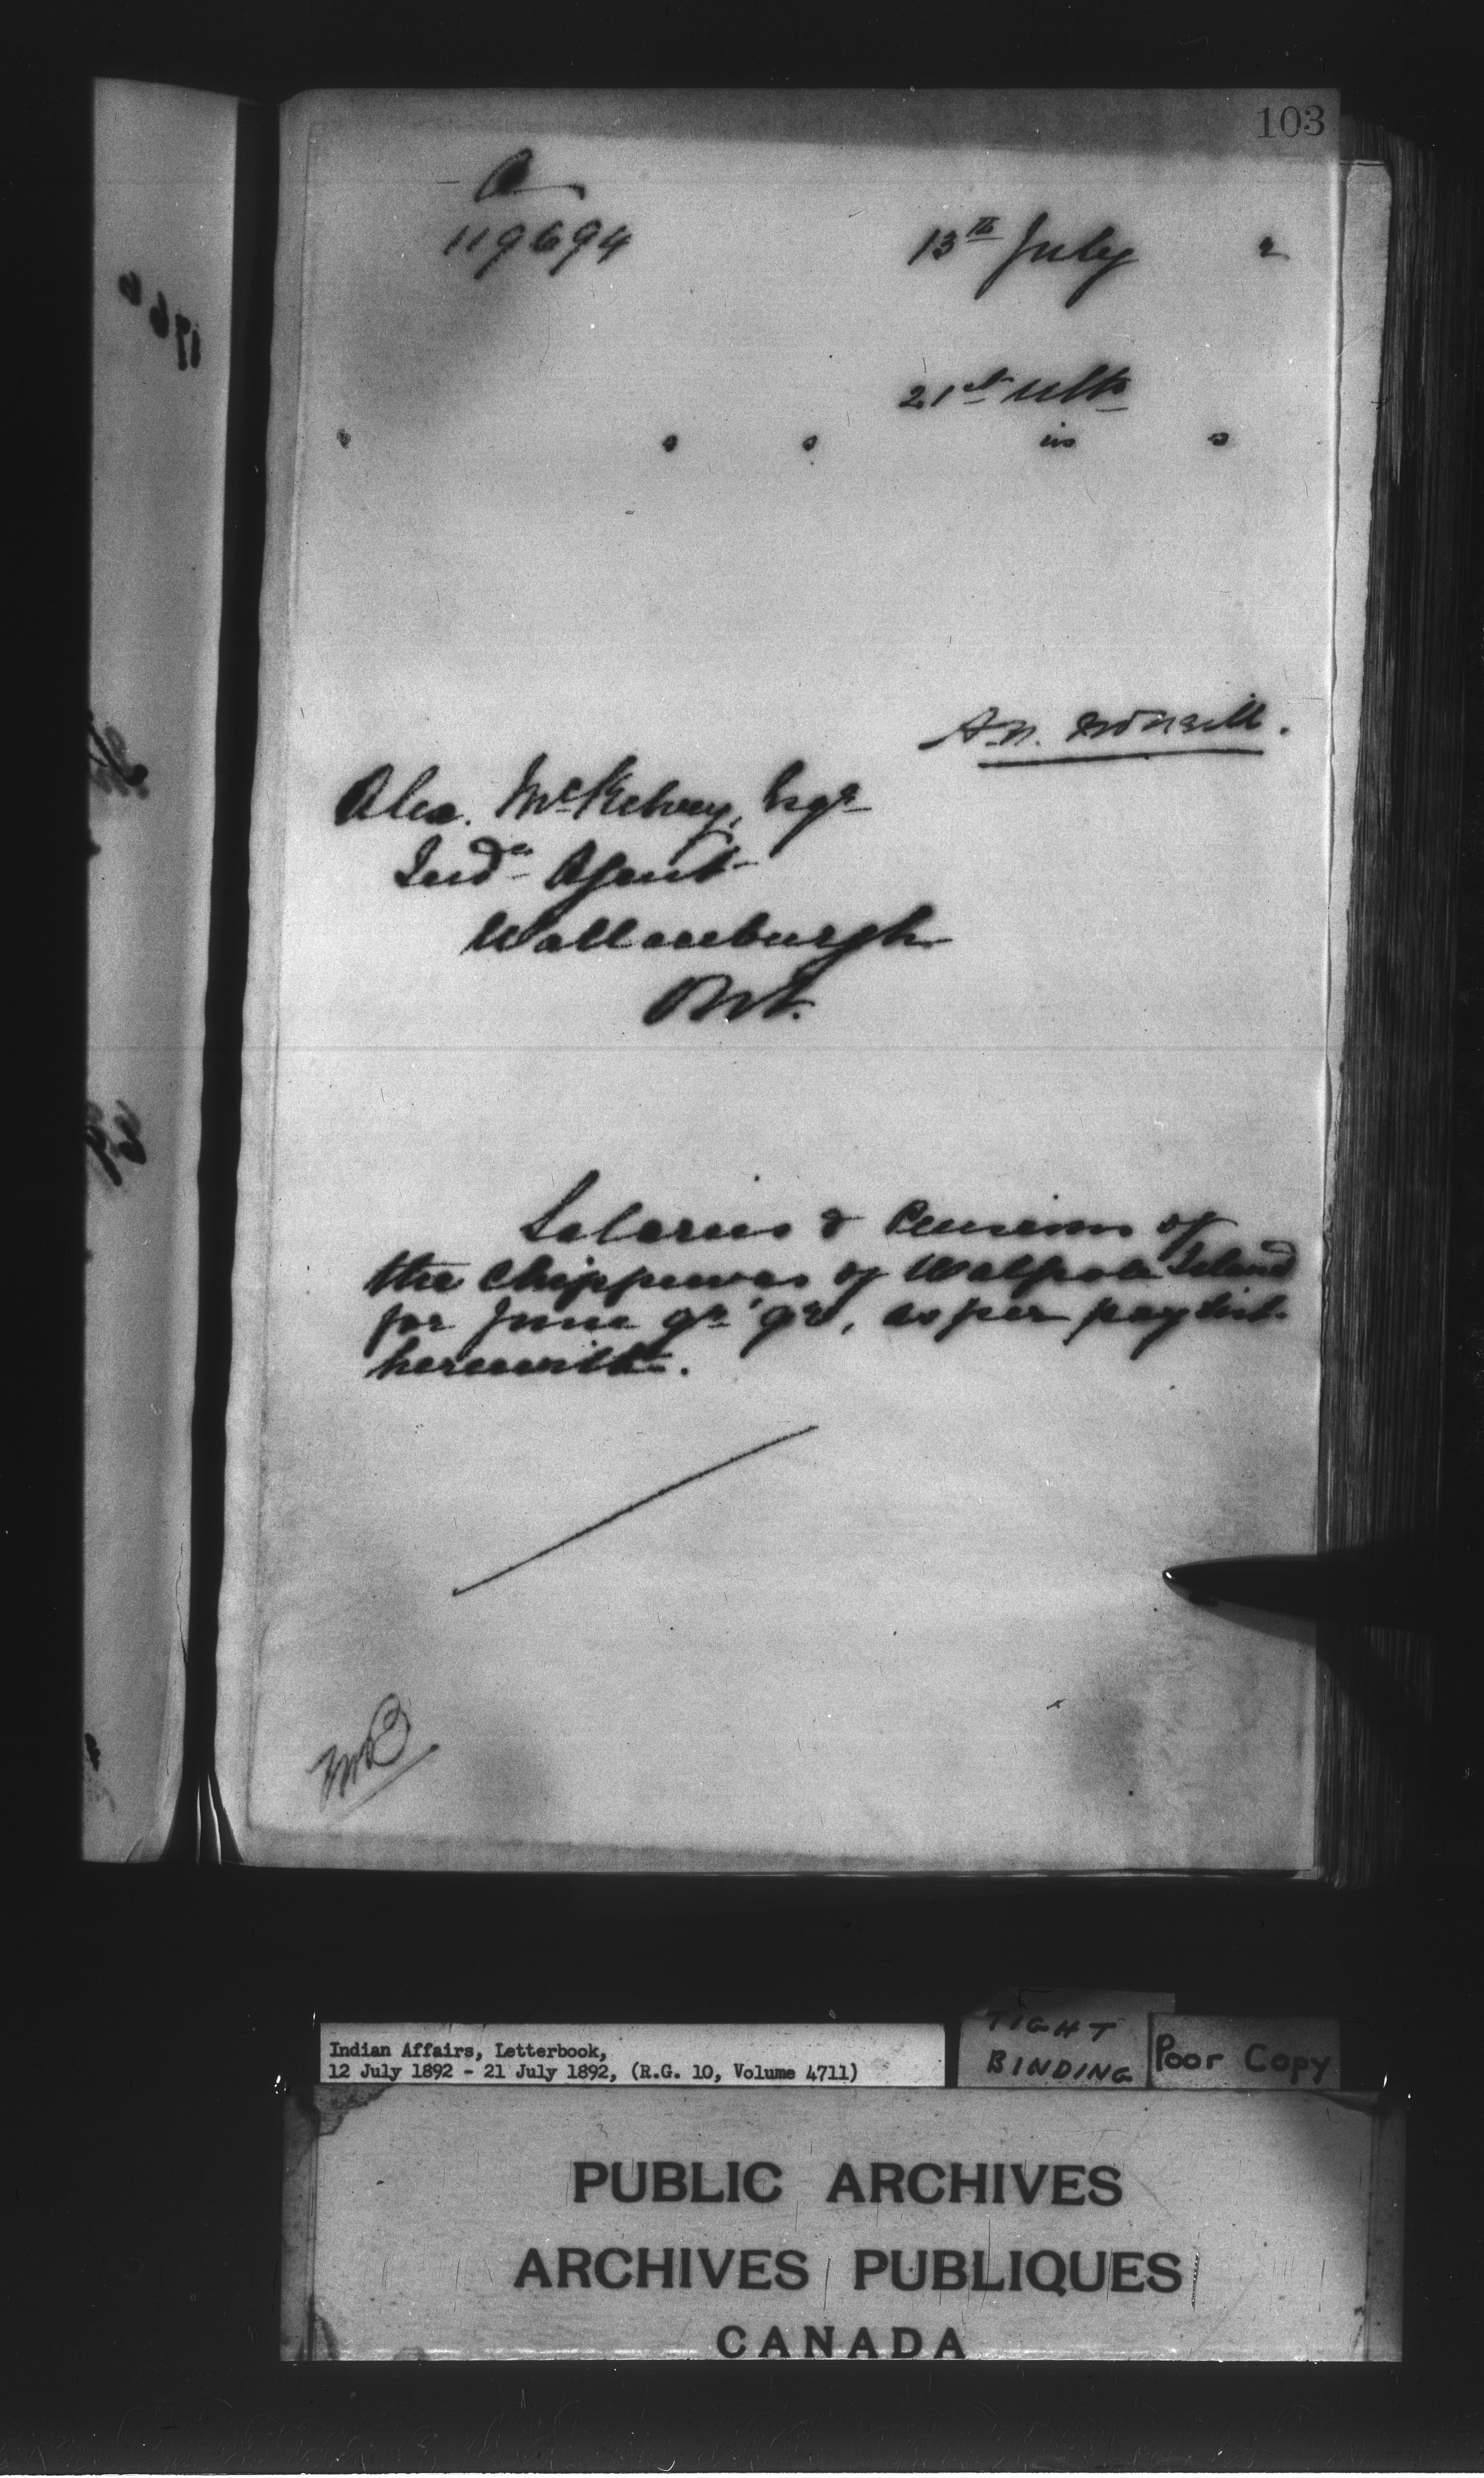 103
A
119694
13th July 2
21st ulto
is
A. N. McNeill.
Alex. McKelvey, Esqr
Indn Agent
Wallaceburgh
Ont.
Salaries & Pensions of
the Chippewas of Walpole Island
for June qr '92, as per paylist
herewith.
Indian Affairs, Letterbook,
12 July 1892 - 21 July 1892, (R.G. 10, Volume 4711)
TIGHT
BINDING
Poor Copy
PUBLIC ARCHIVES
ARCHIVES PUBLIQUES
CANADA